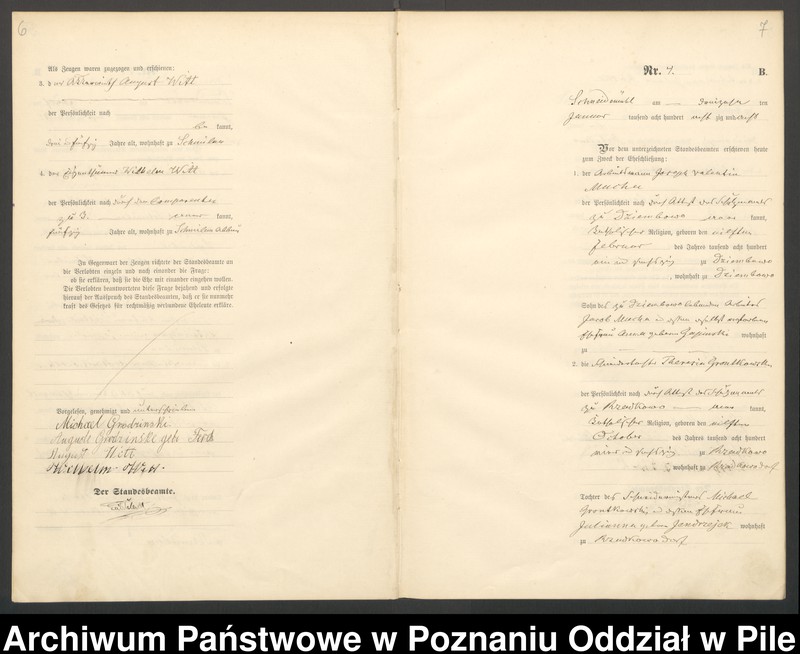 6
Als Zeugen waren zugezogen und erschienen:
3. der August Witt
der Persönlichkeit nach
kannt,
Jahre alt, wohnhaft zu
4. der Eigenthümer Wilhelm Witt
der Persönlichkeit nach durch den Comparenten
zu 3. kannt,
fünfzig Jahre alt, wohnhaft zu
In Gegenwart der Zeugen richtete der Standesbeamte an
die Verlobten einzeln und nach einander die Frage:
ob sie erklären, daß sie die Ehe mit einander eingehen wollen.
Die Verlobten beantworteten diese Frage bejahend und erfolgte
hierauf der Ausspruch des Standesbeamten, daß er sie nunmehr
kraft des Gesetzes für rechtmäßig verbundene Eheleute erkläre.
Vorgelesen, genehmigt und unterschrieben
Michael Grodzinski
Auguste Grodzinski geb.
August Witt
Wilhelm Witt.
Der Standesbeamte.
7
Nr. 4. B.
Schneidemühl am dreizehn ten
Januar tausend acht hundert acht zig und acht
Vor dem unterzeichneten Standesbeamten erschienen heute
zum Zweck der Eheschließung:
1. der Arbeitsmann Joseph Valentin
Macha
der Persönlichkeit nach durch Attest des Schulzenamts
zu Dziembowo kannt,
katholischer Religion, geboren den elften
Februar des Jahres tausend acht hundert
ein und sechszig zu Dziembowo
, wohnhaft zu Dziembowo
Sohn des zu Dziembowo lebenden Arbeiters
Jacob Macha und dessen daselbst verstorbenen
Ehefrau Anna geborene wohnhaft
zu
2. die Theresia Grontkowska
der Persönlichkeit nach durch Attest des Schulzenamts
zu Rzadkowo kannt,
katholischer Religion, geboren den elften
October des Jahres tausend acht hundert
vier und sechszig zu Rzadkowo
, wohnhaft zu Rzadkowo Dorf
Tochter des Michael
Grontkowski und dessen Ehefrau
Julianna geborne wohnhaft
zu Rzadkowo Dorf
Archiwum Państwowe w Poznaniu Oddział w Pile